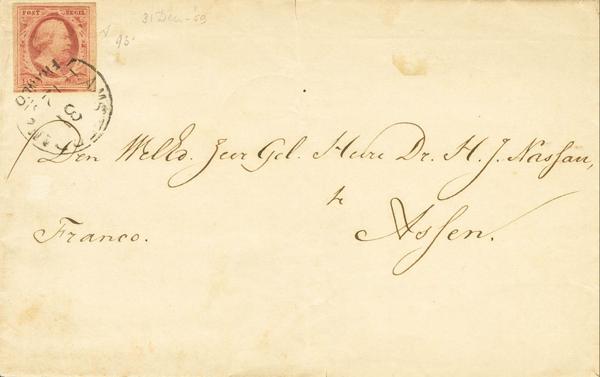 POST ZEGEL
31 Dec - 59
95.
FRANCO
Den WelEd. Zeer Gel. Heere Dr. H. J. Nassau,
te
Assen.
Franco.